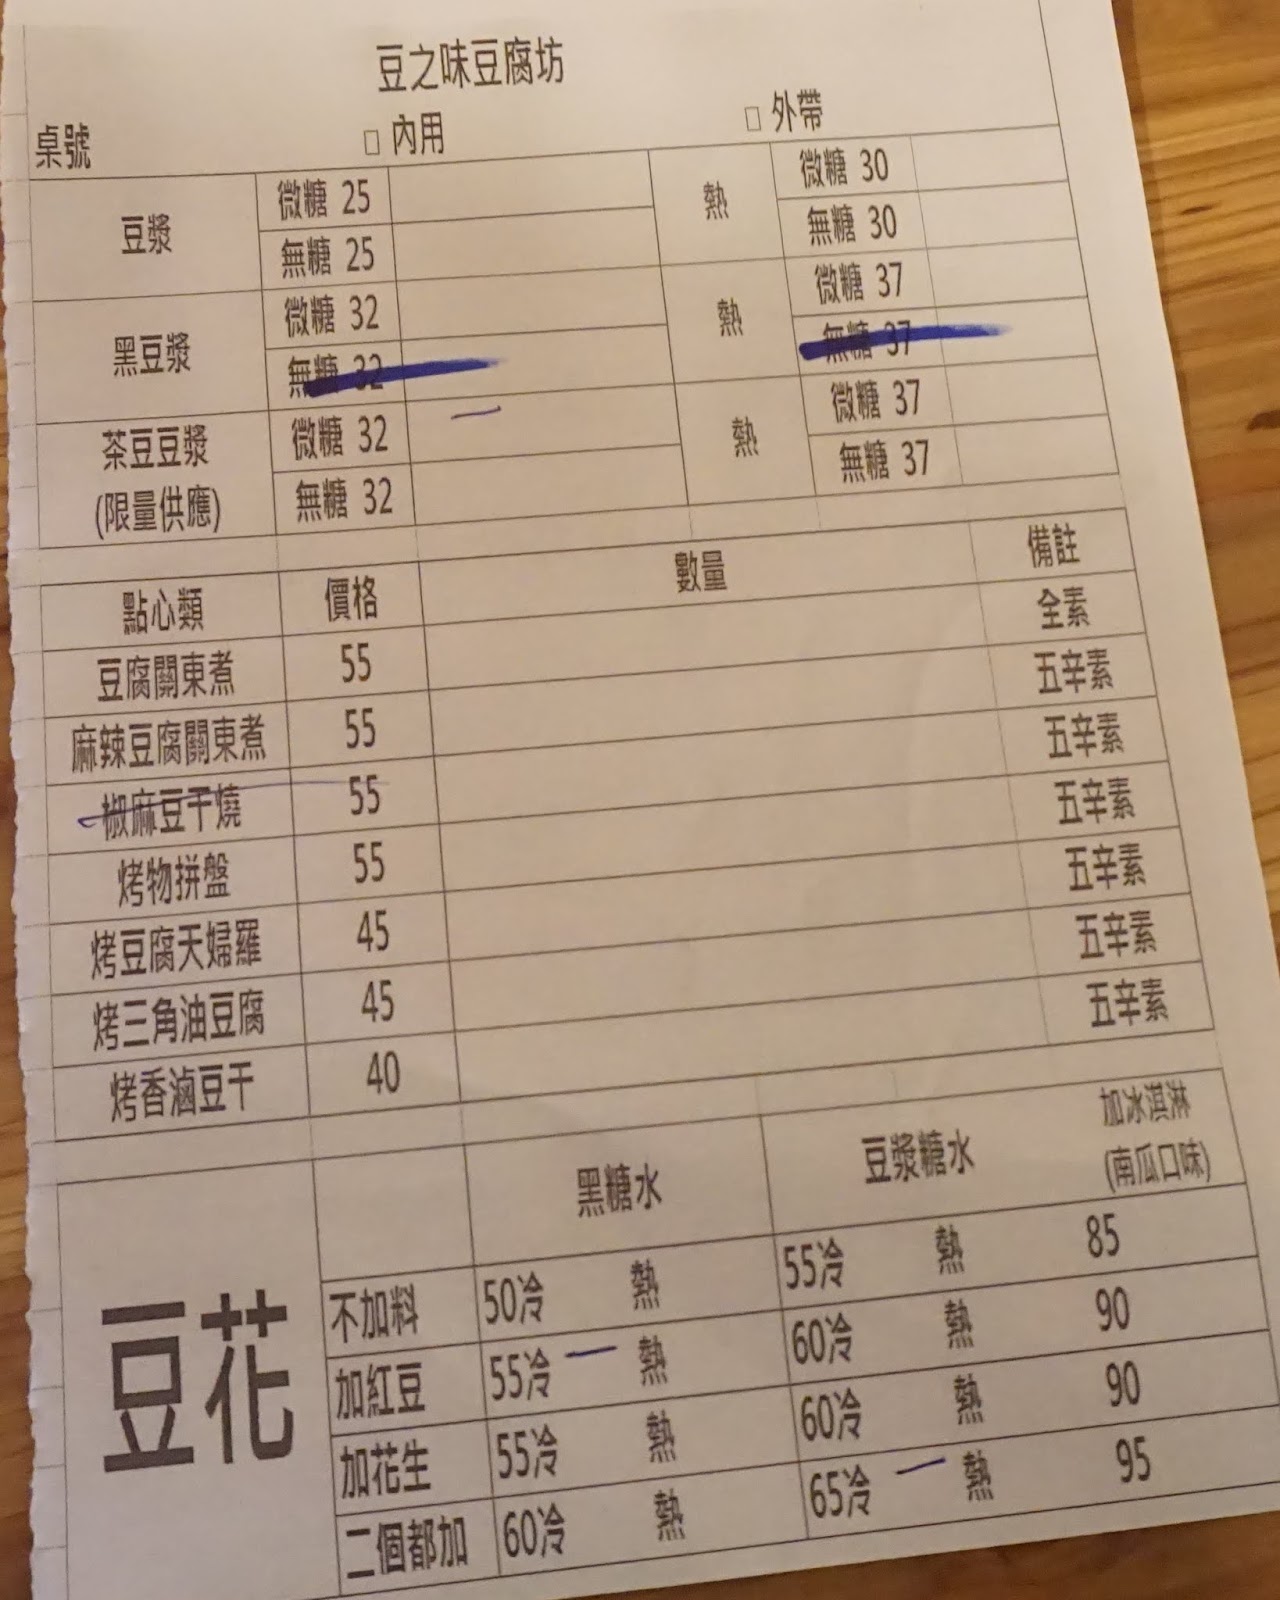 豆之味豆腐坊
桌號 □ 內用 □ 外帶
豆漿 微糖 25 熱 微糖 30
無糖 25 無糖 30
黑豆漿 微糖 32 熱 微糖 37
無糖 32 無糖 37
茶豆豆漿 微糖 32 熱 微糖 37
(限量供應) 無糖 32 無糖 37
點心類 價格 數量 備註
豆腐關東煮 55 全素
麻辣豆腐關東煮 55 五辛素
椒麻豆干燒 55 五辛素
烤物拼盤 55 五辛素
烤豆腐天婦羅 45 五辛素
烤三角油豆腐 45 五辛素
烤香滷豆干 40 五辛素
豆花 黑糖水 豆漿糖水 加冰淇淋
(南瓜口味)
不加料 50冷 熱 55冷 熱 85
加紅豆 55冷 熱 60冷 熱 90
加花生 55冷 熱 60冷 熱 90
二個都加 60冷 熱 65冷 熱 95